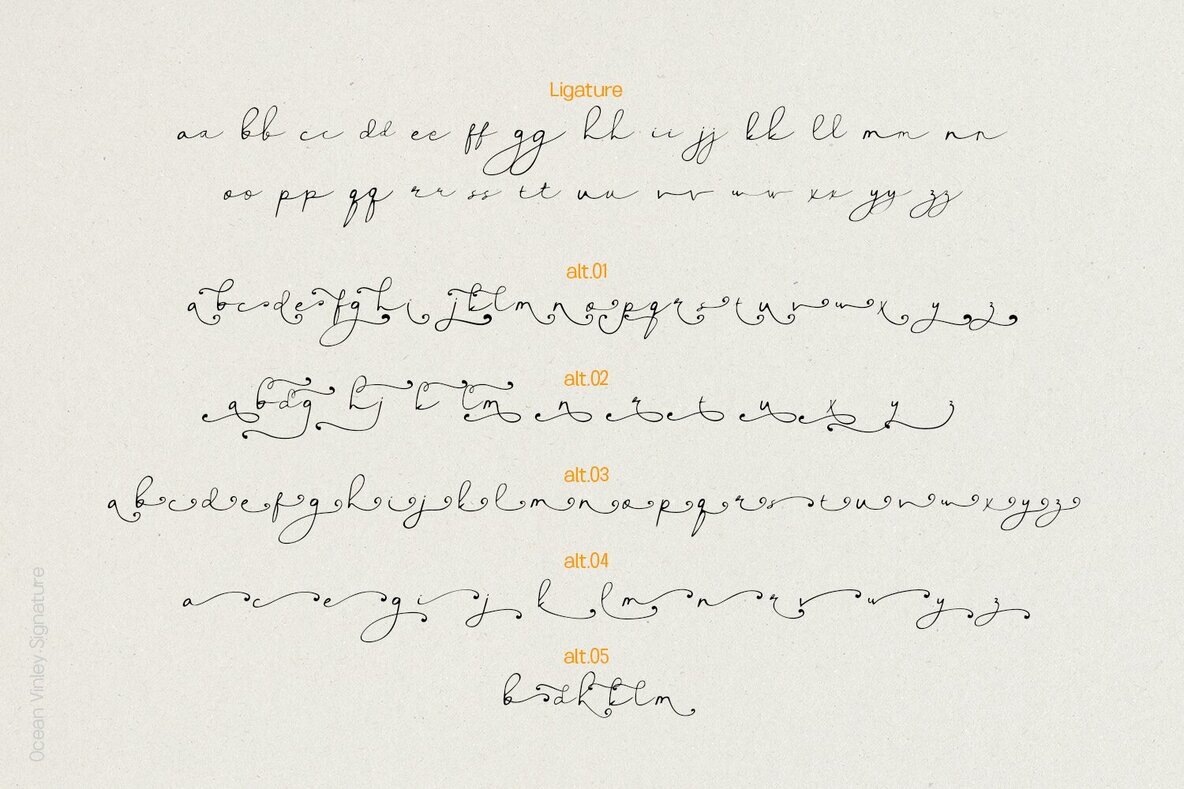 Ligature
aa bb cc dd ee ff gg hh ii jj kk ll mm nn
oo pp qq rr ss tt uu vv ww xx yy zz
alt.01
a b c d e f g h i j k l m n o p q r s t u v w x y z
alt.02
a b d g h j k l m n r t u x y z
alt.03
a b c d e f g h i j k l m n o p q r s t u v w x y z
alt.04
a c e g i j k l m n r v w y z
alt.05
b d h k l m
Ocean Vinley Signature